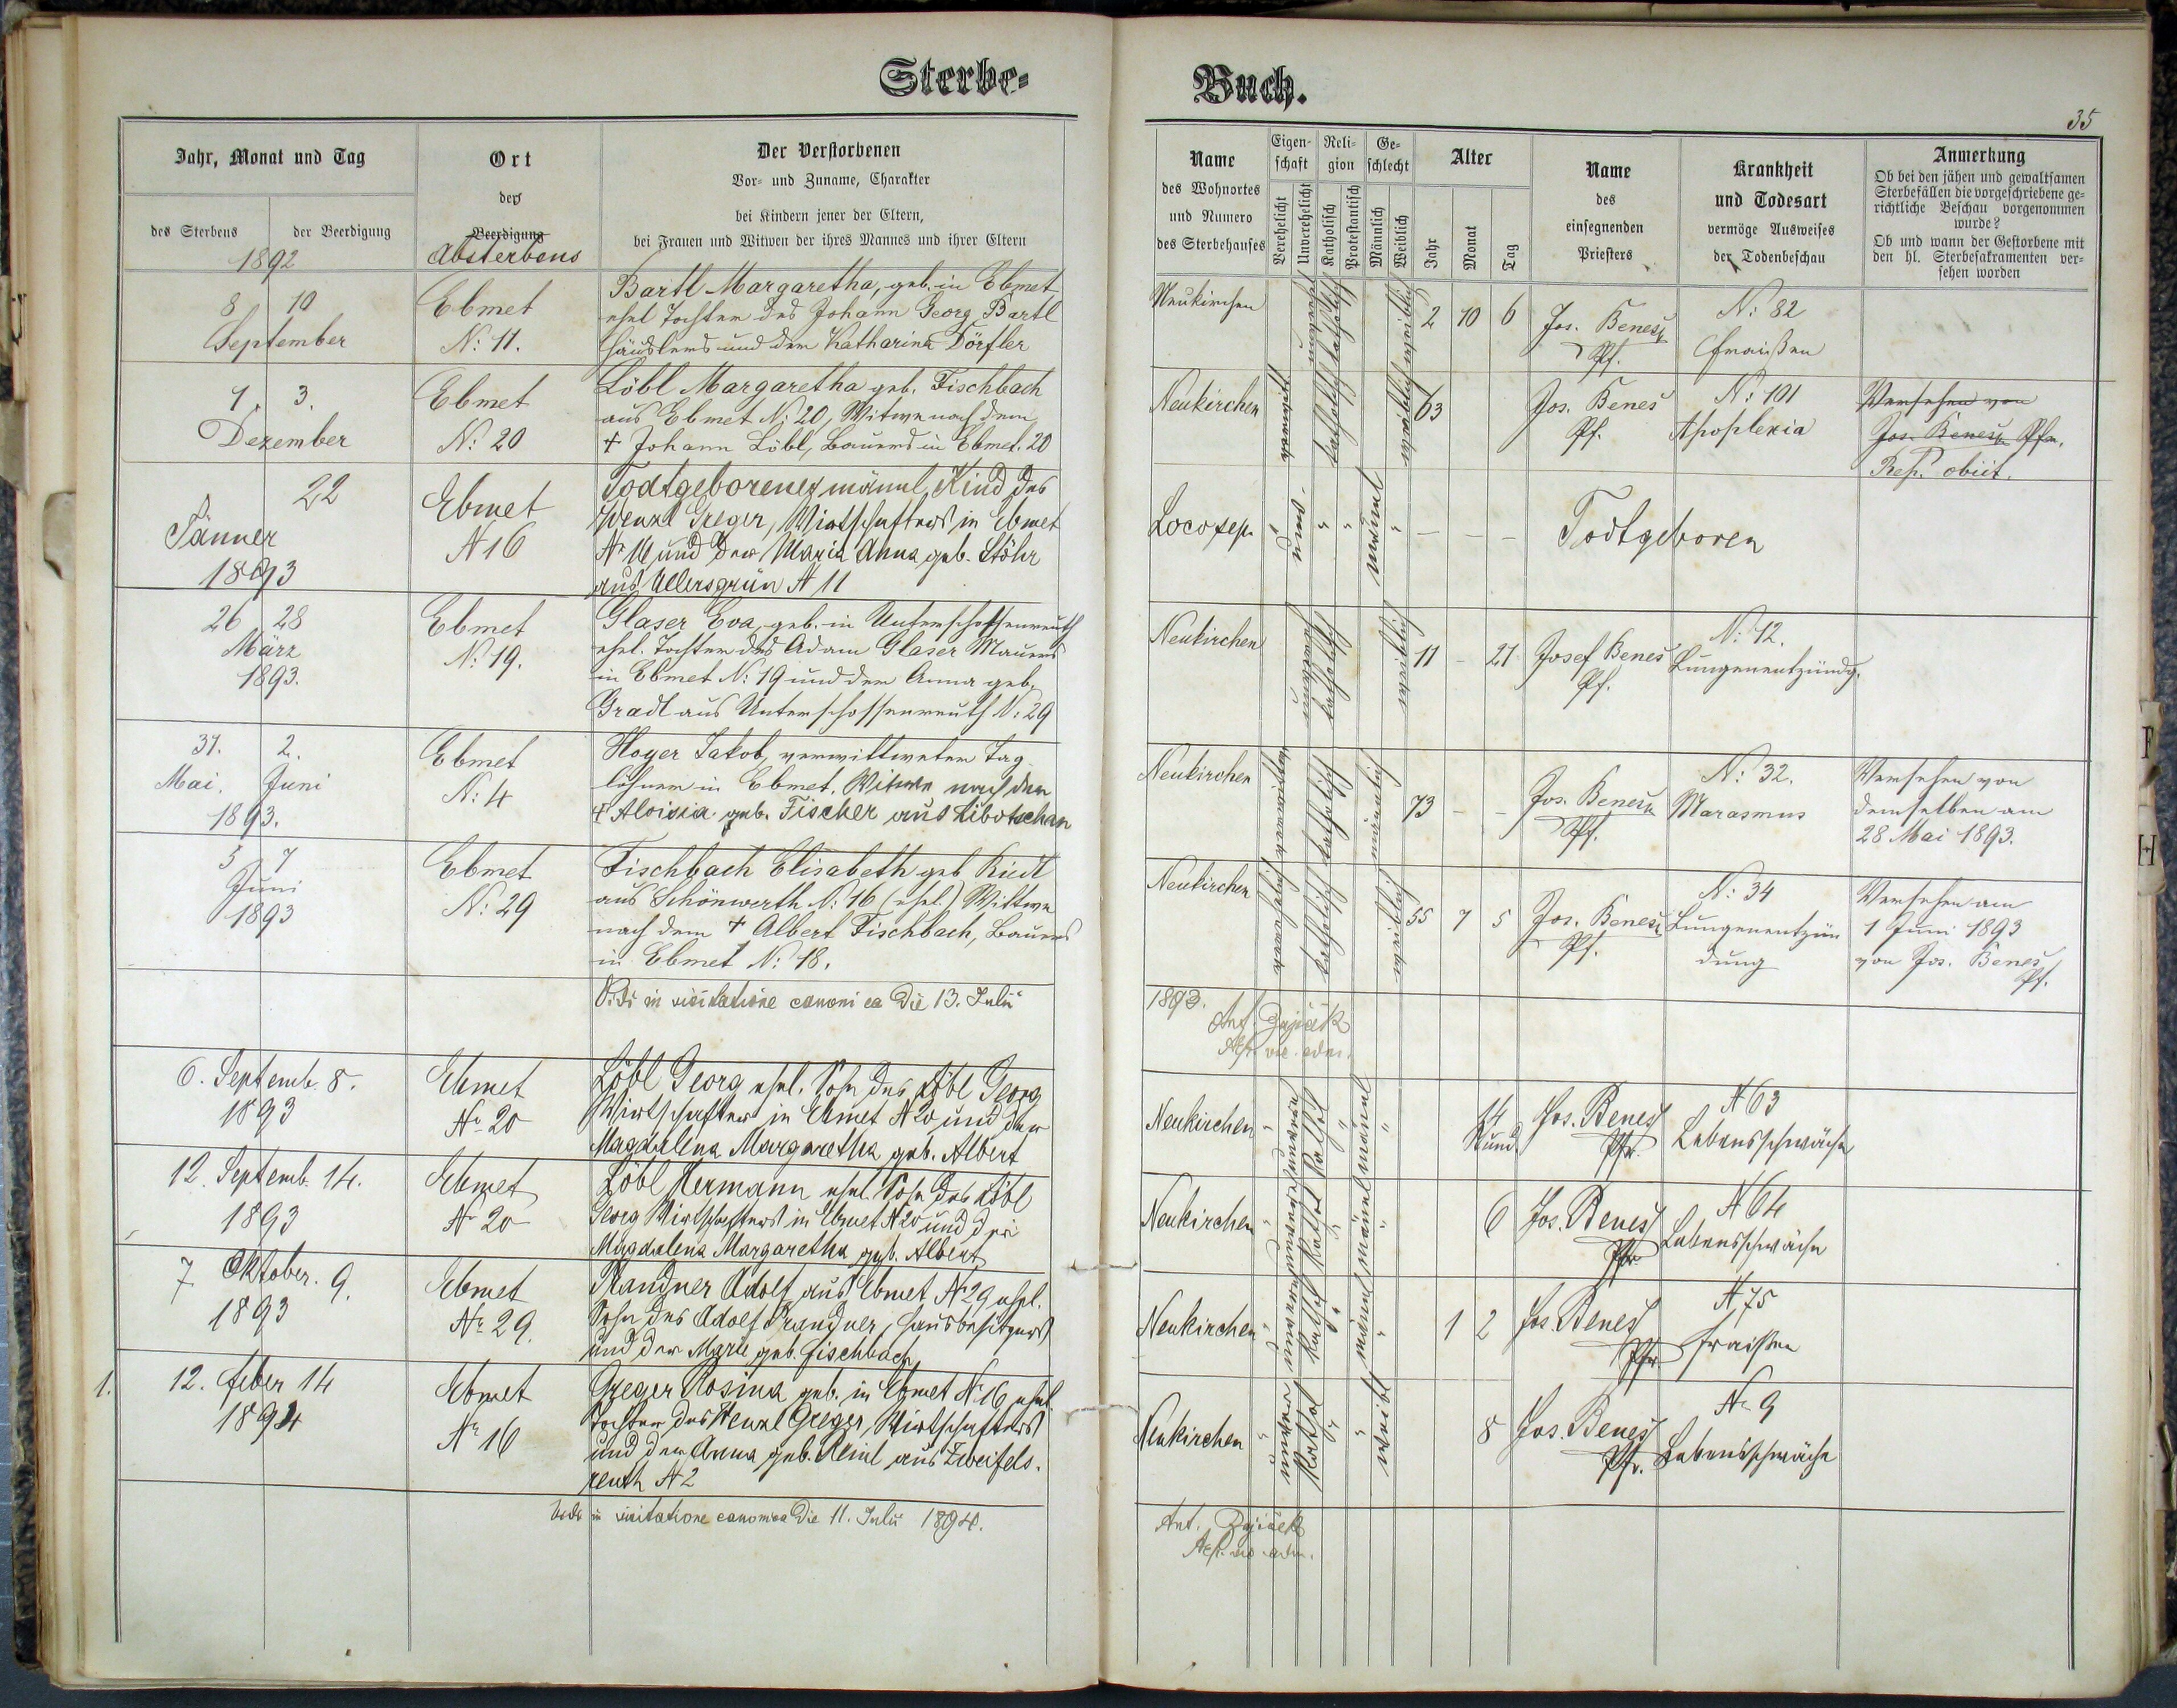 Sterbe-
Buch.
35
Jahr, Monat und Tag
des Sterbens
der Beerdigung
1892
Ort
des
Beerdigung
Absterbens
Der Verstorbenen
Vor- und Zuname, Charakter
bei Kindern jener der Eltern,
bei Frauen und Witwen der ihres Mannes und ihrer Eltern
Name
des Wohnortes
und Numero
des Sterbehauses
Eigen-
schaft
Verehelicht
Unverehelicht
Reli-
gion
Katholisch
Protestantisch
Ge-
schlecht
Männlich
Weiblich
Alter
Jahr
Monat
Tag
Name
des
einsegnenden
Priesters
Krankheit
und Todesart
vermöge Ausweises
der Todenbeschau
Anmerkung
Ob bei den jähen und gewaltsamen
Sterbefällen die vorgeschriebene ge-
richtliche Beschau vorgenommen
wurde?
Ob und wann der Gestorbene mit
den hl. Sterbesakramenten ver-
sehen worden
8 10
September
Ebmet
N: 11.
Bartl Margaretha, geb. in Ebmet
ehel Tochter des Johann Georg Bartl
Häuslers und der Katharina Dörfler
Neukirchen
katholisch
weiblich
2 10 6
Jos. Beneš
Pf.
N: 82
Fraißen
1. 3.
Dezember
Ebmet
N: 20
Löbl Margaretha geb. Fischbach
aus Ebmet N: 20, Witwe nach dem
† Johann Löbl, Bauers in Ebmet. 20
Neukirchen
verwitt
katholisch
weiblich
63
Jos. Beneš
Pf.
N: 101
Apoplexia
Versehen von
Jos. Beneš Pfr.
Rep. obiit.
22
Jänner
1893
Ebmet
N 16
Todtgeborenes männl. Kind des
Wenzl Greger, Wirtschafters in Ebmet
Nr 16 und der Maria Anna geb. Stöhr
aus Ullersgrün N 11
Loco sep.
männl
— — —
Todtgeboren
26 28
März
1893.
Ebmet
N: 19.
Glaser Eva, geb. in Unterschossenreuth
ehel. Tochter des Adam Glaser Maurers
in Ebmet N: 19 und der Anna geb.
Gradl aus Unterschossenreuth N: 29
Neukirchen
katholisch
weiblich
11 - 21
Josef Beneš
Pf.
N: 12.
Lungenentzündg.
31. 2.
Mai. Juni
1893.
Ebmet
N: 4
Hoyer Jakob, verwittweter Tag-
löhner in Ebmet. Witwer nach der
† Aloisia geb. Fischer aus Libotschan
Neukirchen
verwittwet
katholisch
männlich
73 - -
Jos. Beneš
Pf.
N: 32.
Marasmus
Versehen von
demselben am
28 Mai 1893.
5 7
Juni
1893
Ebmet
N: 29
Fischbach Elisabeth geb Riedl
aus Schönwerth N: 16 (ehel.) Wittwe
nach dem † Albert Fischbach, Bauers
in Ebmet N: 18.
Neukirchen
katholisch
weiblich
55 7 5
Jos. Beneš
Pf.
N: 34
Lungenentzün
dung
Versehen am
1 Juni 1893
von Jos. Beneš
Pf.
Vidi in visitatione canonica die 13. Julii
1893.
Ant. Zajiček
6. Septemb. 8.
1893
Ebmet
Nr 20
Löbl Georg ehel. Sohn des Löbl Georg
Wirtschafters in Ebmet N 20 und der
Magdalena Margaretha geb. Albert
Neukirchen
männl
14
Stund.
Jos. Beneš
Pfr.
N 63
Lebensschwäche
12. Septemb. 14.
1893
Ebmet
Nr 20
Löbl Hermann ehel. Sohn des Löbl
Georg Wirtschafters in Ebmet N 20 und der
Magdalena Margaretha geb. Albert
Neukirchen
männl
6
Jos. Beneš
Pfr.
N 64
Lebensschwäche
7 Oktober. 9.
1893
Ebmet
Nr 29.
Prandner Adolf aus Ebmet Nr 29 ehel.
Sohn des Adolf Prandner, Hausbesitzers
und der Marie geb. Fischbach
Neukirchen
männl
1 2
Jos. Beneš
Pfr
N 75
Fraißen
1.
12. Feber 14
1894
Ebmet
Nr 16
Greger Rosina geb. in Ebmet Nr 16 ehel.
Tochter des Wenzl Greger, Wirtschafters
und der Anna geb. Reinl aus Zweifels-
reuth N 2
Neukirchen
Kathol
weibl
8
Jos. Beneš
Pfr.
Nr 9
Lebensschwäche
Vidi in visitatione canonica die 11. Julii 1894.
Ant. Zajiček